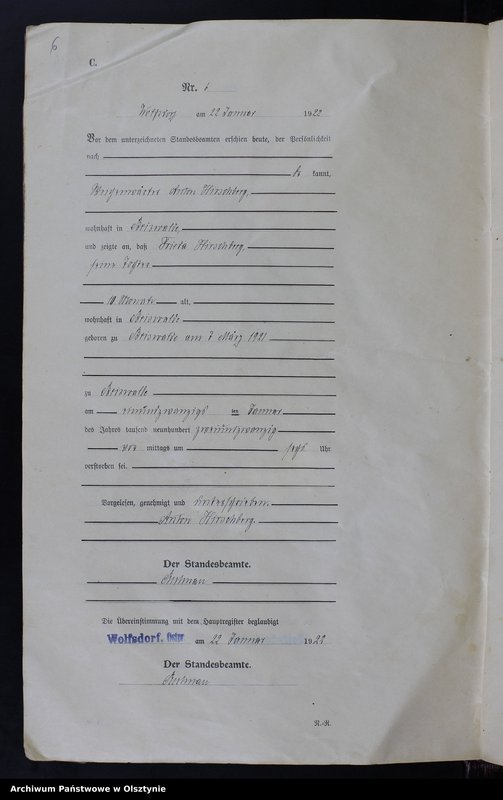 6
C.
Nr. 6
am 22 Januar 1922
Vor dem unterzeichneten Standesbeamten erschien heute, der Persönlichkeit
nach
be kannt,
Anton Hirschberg.
wohnhaft in
und zeigte an, daß Frieda Hirschberg,
seine Tochter
10 Monate alt,
wohnhaft in
geboren zu am 7 März 1921
zu
am einundzwanzigs ten Januar
des Jahres tausend neunhundert zweiundzwanzig
vor mittags um sechs Uhr
verstorben sei.
Vorgelesen, genehmigt und unterschrieben.
Anton Hirschberg.
Der Standesbeamte.
Die Übereinstimmung mit dem Hauptregister beglaubigt
Wolfsdorf. Ostpr am 22 Januar 1922
Der Standesbeamte.
N.-R.
Archiwum Państwowe w Olsztynie